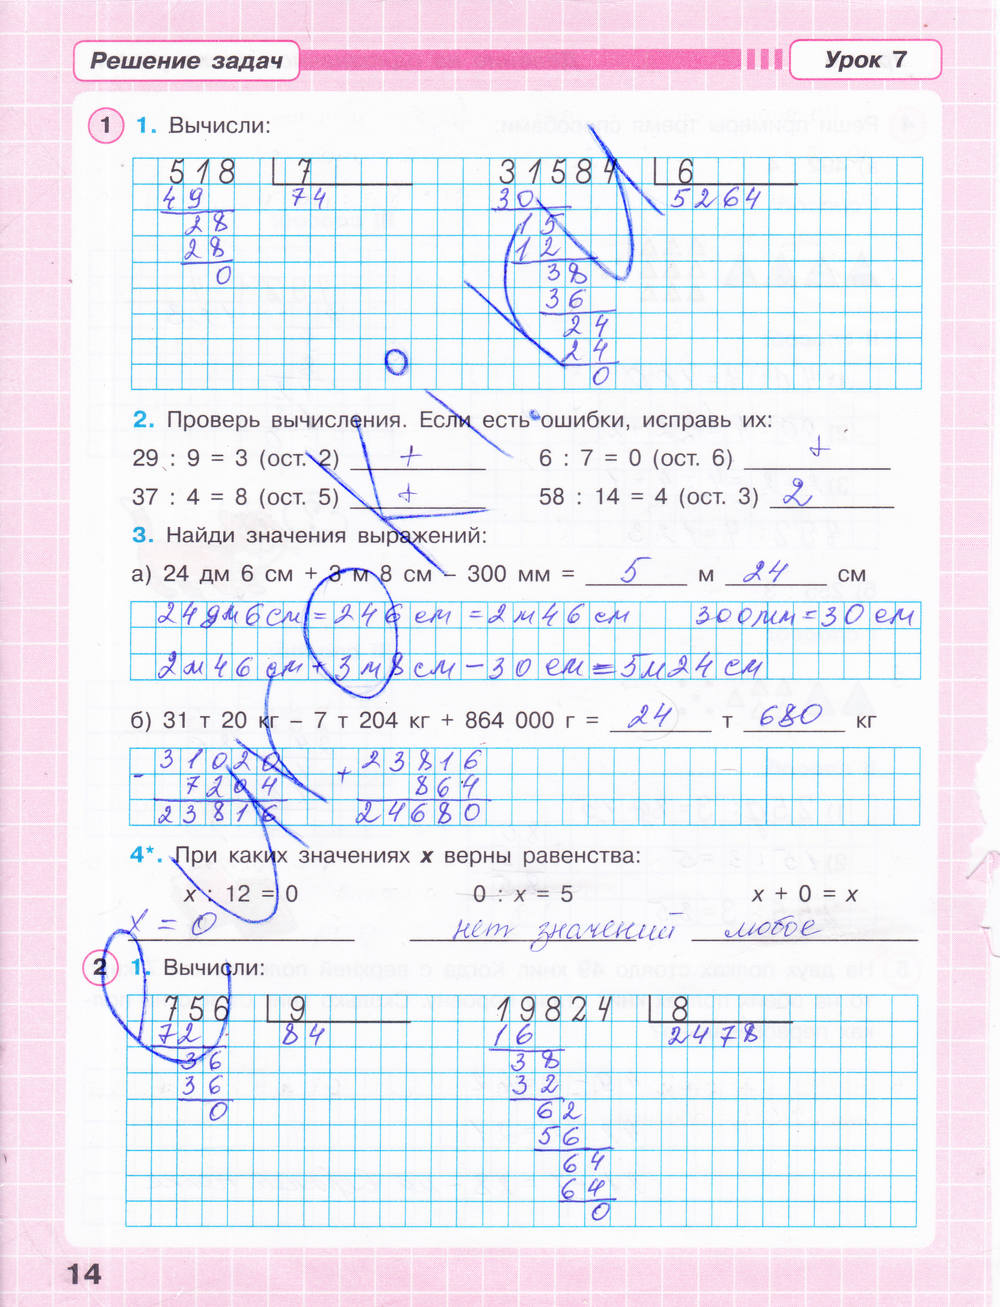 Решение задач
Урок 7
1
1. Вычисли:
518 7
31584 6
49 74
30 5264
28
15
28
12
0
38
36
24
24
0
2. Проверь вычисления. Если есть ошибки, исправь их:
29 : 9 = 3 (ост. 2) +
6 : 7 = 0 (ост. 6) +
37 : 4 = 8 (ост. 5) +
58 : 14 = 4 (ост. 3) 2
3. Найди значения выражений:
а) 24 дм 6 см + 3 м 8 см – 300 мм = 5 м 24 см
24дм6см = 246 см = 2м46см 300мм = 30 см
2м46см + 3м8см – 30 см = 5м24см
б) 31 т 20 кг – 7 т 204 кг + 864 000 г = 24 т 680 кг
- 31020 + 23816
7204 864
23816 24680
4*. При каких значениях х верны равенства:
х : 12 = 0 0 : х = 5 х + 0 = х
х = 0 нет значений любое
2
1. Вычисли:
756 9
19824 8
72 84
16 2478
36
38
36
32
0
62
56
64
64
0
14